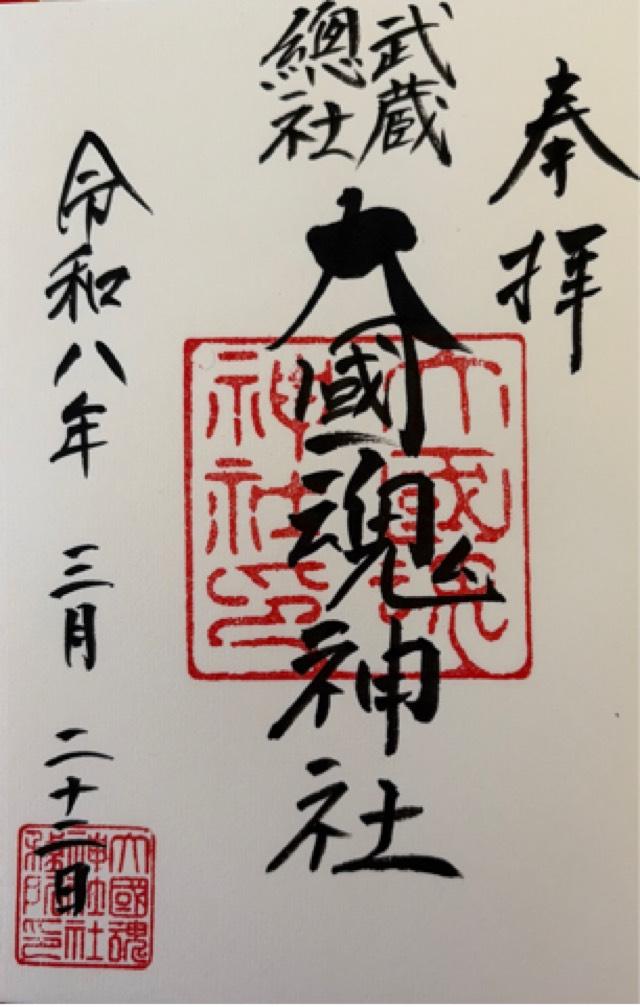 奉拝
武蔵
總社
大國魂神社
令和八年 三月 二十二日
大國魂
神社印
大國魂
神社社
務所印